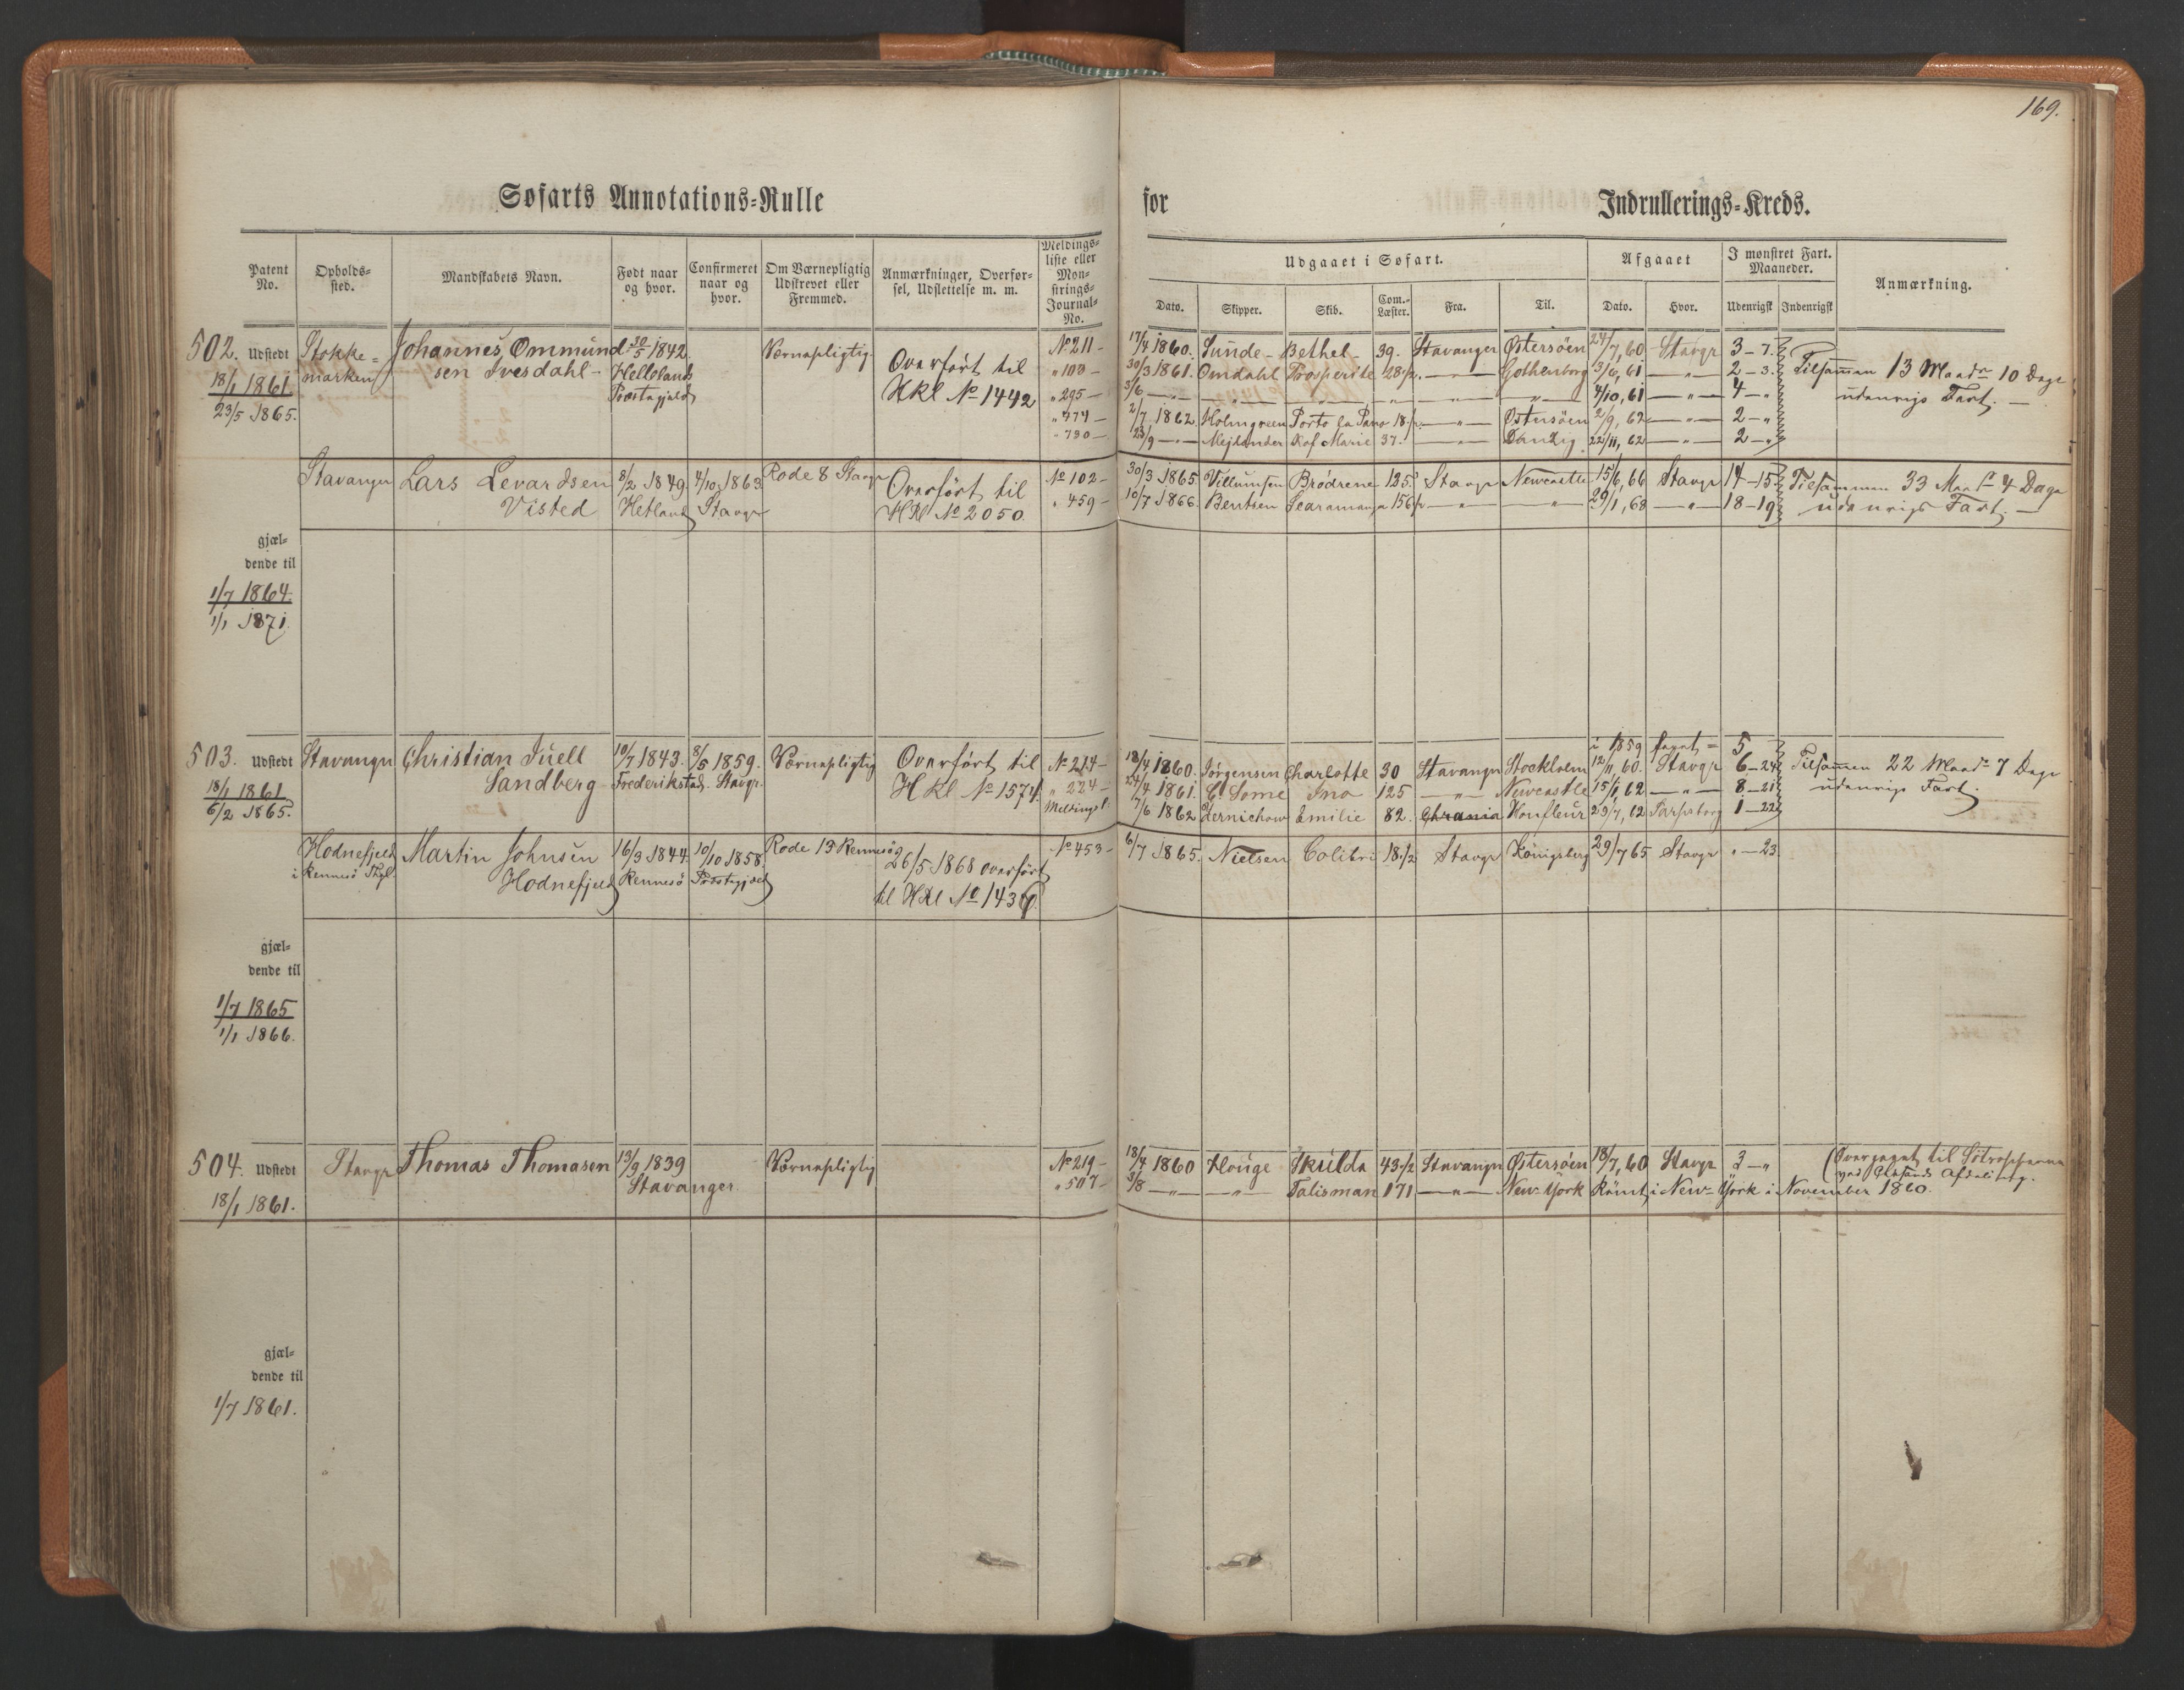 169.
Søfarts Annotations-Rulle for Indrullerings-Kreds.
Patent No.
Opholds-sted.
Mandskabets Navn.
Født naar og hvor.
Confirmeret naar og hvor.
Om Værnepligtig Udskrevet eller Fremmed.
Anmærkninger, Overfør-sel, Udslettelse m. m.
Meldings-liste eller Møn-strings-Journal-No.
Udgaaet i Søfart.
Dato. Skipper. Skib. Com.-Læster. Fra. Til.
Afgaaet
Dato. Hvor.
I mønstret Fart. Maaneder.
Udenrigsk Indenrigsk
Anmærkning.
502. Udstedt
18/1 1861
23/5 1865.
Stokke-
marken
Johannes Ommund-
sen Ivesdahl
20/5 1842
Helleland
Præstegjeld
Værnepligtig
Overført til
Hkl No 1442
No 211 -
" 103 -
" 295 -
" 774 -
" 730 -
17/4 1860. Sunde - Bethel - 39. Stavanger Østersøen 24/7, 60 Stavgr 3 - 7.
30/3 1861. Omdahl Prosperite 28 1/2. — " — Gothenborg 3/6, 61 — " — 2 - 3.
3/6 — " — " " " " " 4/10, 61 — " — 4 - "
2/7 1862 Holmgreen Porto la 18 1/2 — " — Østersøen 2/9, 62 — " — 2 - "
23/9 — " — Mejdander Hof Marie 37. — " — Danzig 22/11, 62 — " — 2 - "
Tilsammen 13 Maadr 10 Dage
udenrigs Fart. —
Stavanger
Lars Levardsen
Visted
8/2 1849
Hetland
4/10 1863
Stavgr
Rode 8 Stavgr
Overført til
HKl No 2050.
No 102 -
" 459 -
30/3 1865. Villumsen Brødrene 125. Stavgr Newcastle 15/6, 66 Stavgr 14 - 15.
10/7 1866. Bentsen Scaramanga 156 1/2 — " — — " — 29/1, 68 — " — 18 - 19
Tilsammen 33 Maadr 4 Dage
udenrigs Fart. —
gjæl-
dende til
1/7 1864.
1/1 1871.
503. Udstedt
18/1 1861
6/2 1865.
Stavanger
Christian Juell
Sandberg
10/7 1843.
Frederikstad.
8/5 1859.
Stavgr.
Værnepligtig
Overført til
Hkl No 1574.
No 214 -
" 224 -
Meldingsl.
i 1859 faret = 5
18/4 1860. Jørgensen Charlotte 30 Stavanger Stockholm 12/11 60. Stavgr 6 - 24
24/4 1861. C. Some Ino 125 — " — Newcastle 15/1, 62 — " — 8 - 21
7/6 1862 Emilie 82. Chrania Honfleur 29/7, 62 Sarpsborg 1 - 22
Tilsammen 22 Maadr 7 Dage
udenrigs Fart.
Hodnefjeld
i Rennesø Thgl.
Martin Johnsen
Hodnefjeld
16/3 1844.
Rennesø
10/10 1858.
Præstegjæld
Rode 13 Rennesø
26/5 1868 overført
til HKl No 1436.
No 453 -
6/7 1865. Nielsen Colibri 18 1/2 Stavgr Königsberg 29/7 65 Stavgr " - 23.
gjæl-
dende til
1/7 1865
1/1 1866.
504. Udstedt
18/1 1861.
Stavgr
Thomas Thomasen
13/9 1839
Stavanger
Værnepligtig
No 219 -
" 507 -
18/4 1860 Houge Skulda 43 1/2 Stavanger Østersøen 18/7, 60 Stavgr 3 - "
3/8 — " — — " — Talisman 171 — " — New York Rømt i New York i November 1860.
(Overgaaet til Søtropperne
gjæl-
dende til
1/7 1861.